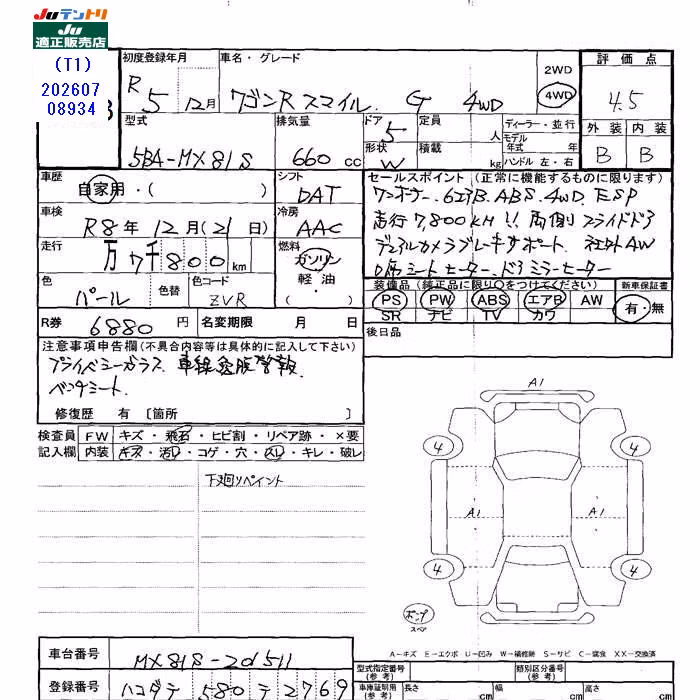 Juテントリ
Ju
適正販売店
(T1)
202607
08934
初度登録年月
車名・グレード
2WD
4WD
評価点
R 5 12月
ワゴンR スマイル. G 4WD
4.5
型式
排気量
ドア
定員
ディーラー・並行
外装 内装
5BA-MX81S
660 cc
5
人
モデル年式 年
B B
形状
積載
W
kg
ハンドル 左・右
車歴
シフト
セールスポイント(正常に機能するものに限ります)
自家用・( )
DAT
ワンオーナー. 6エアB. ABS. 4WD. ESP
車検
冷房
走行7,800KM!! 両側スライドドア
R8年12月(21日)
AAC
デュアルカメラブレーキサポート. 社外AW
走行
燃料
D席シートヒーター、ドアミラーヒーター
万 7千800km
ガソリン
軽油
装備品(純正品に限り○をつけてください)
新車保証書
色
色替
色コード
PS PW ABS エアB AW
有・無
パール
ZVR
SR ナビ TV カワ
R券 6880円
名変期限 月 日
後日品
注意事項申告欄(不具合内容等は具体的に記入して下さい)
プライベシーガラス. 車線逸脱警報.
ベンチシート.
修復歴 有 〔箇所 〕
検査員
記入欄
FW キズ・飛石・ヒビ割・リペア跡・×要
内装 キズ・汚レ・コゲ・穴・スレ・キレ・破レ
下廻りペイント
A1
4 4
A1 A1
4 4
スペア
A－キズ E－エクボ U－凹み W－補修跡 S－サビ C－腐食 XX－交換済
車台番号 MX81S-201511
登録番号 ハコダテ 580 テ 2769
型式指定番号
(参考)
類別区分番号
(参考)
車庫証明用
(参考)
長さ cm 幅 cm 高さ cm